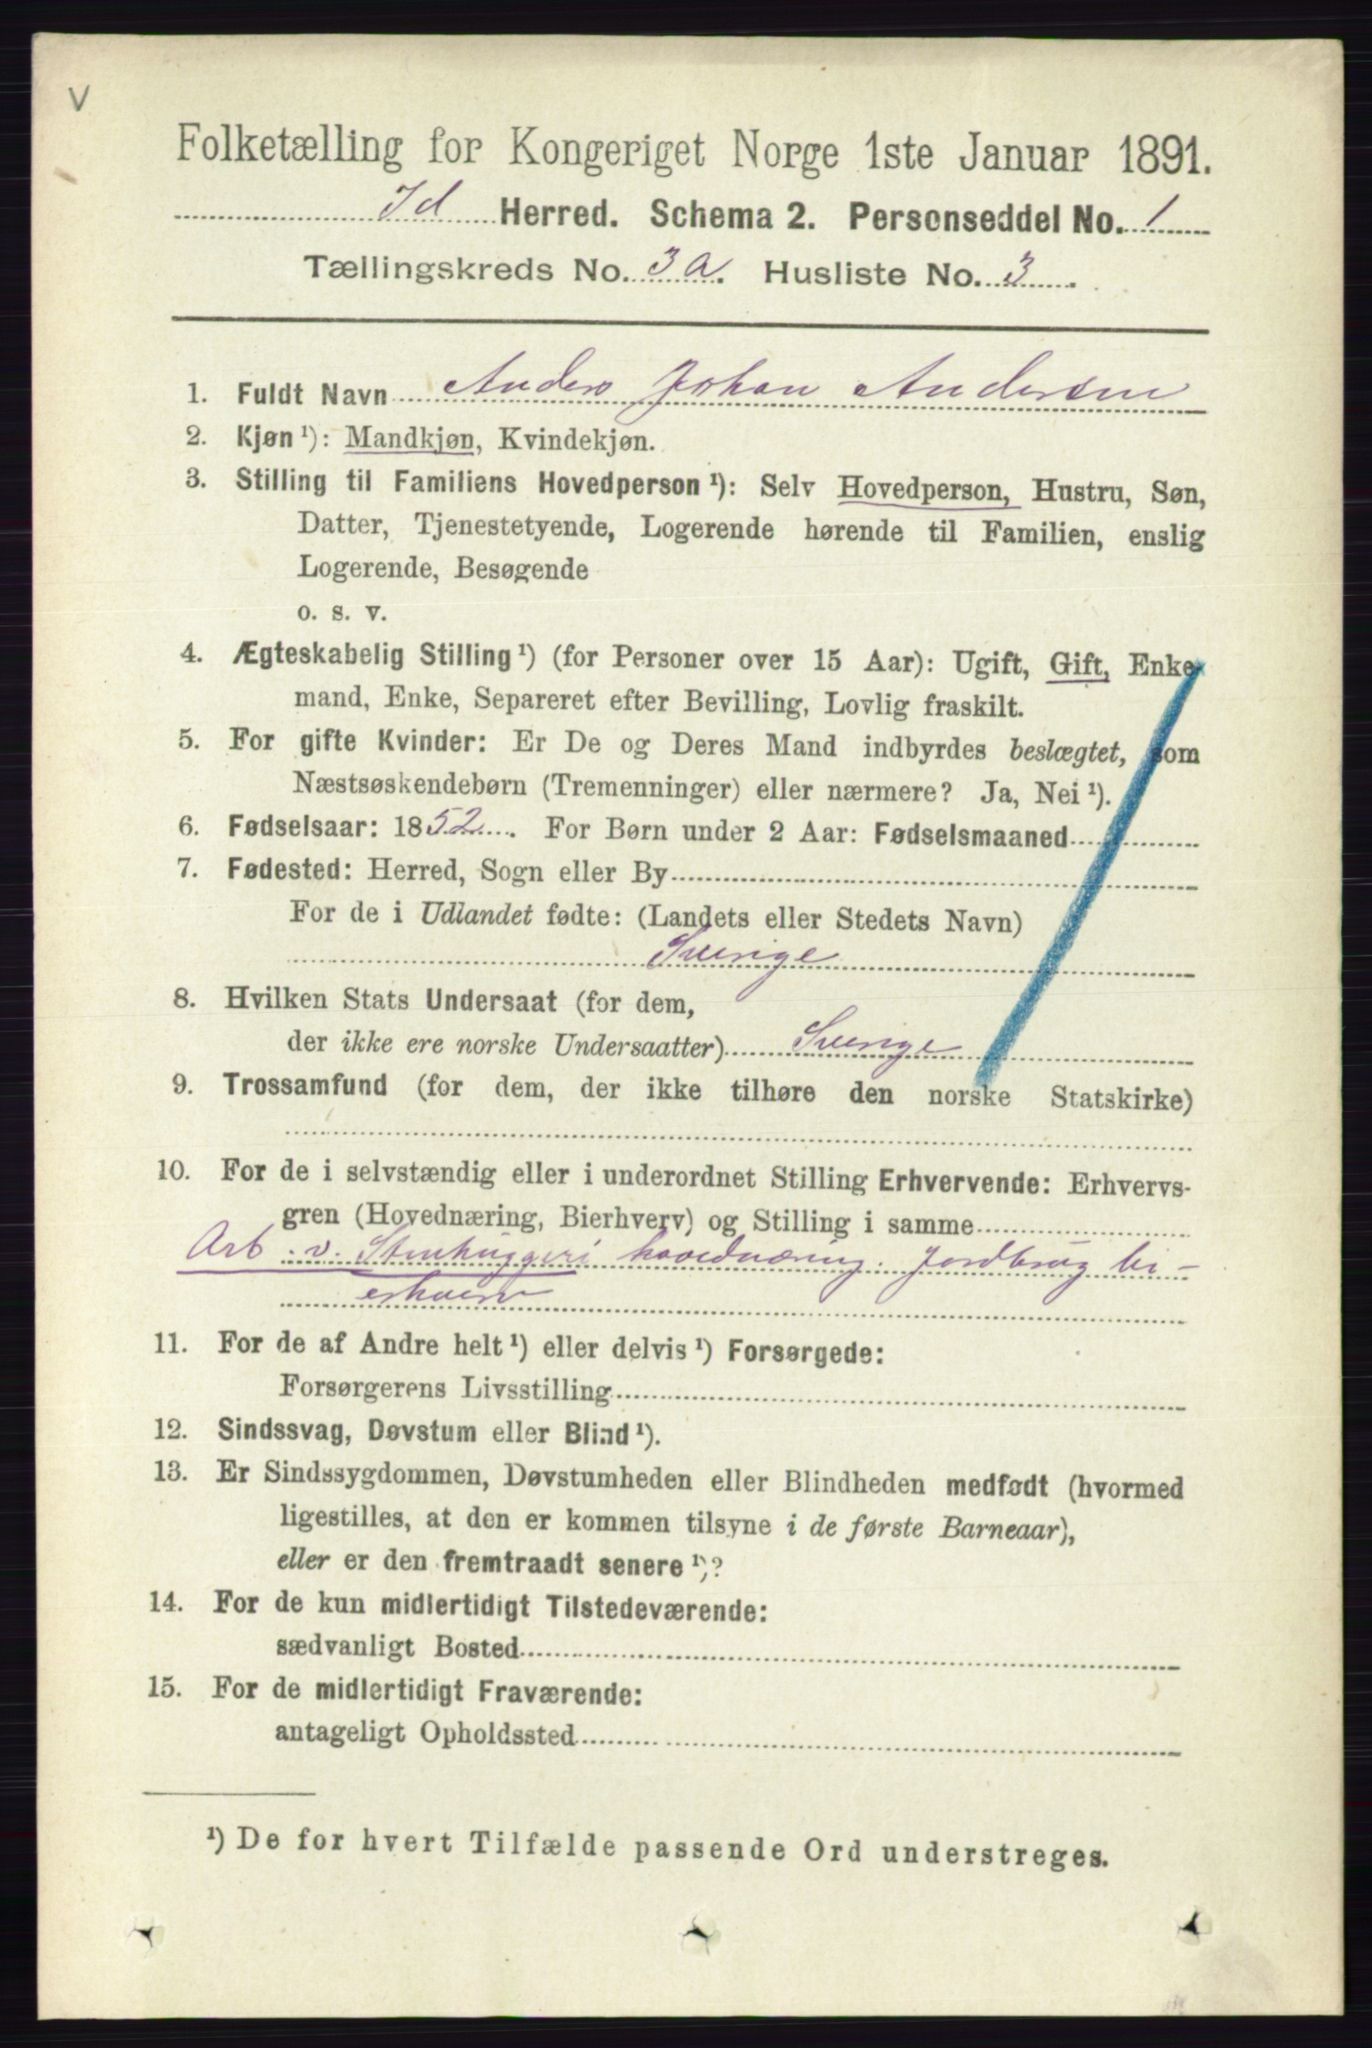 V
Folketælling for Kongeriget Norge 1ste Januar 1891.
Id Herred. Schema 2. Personseddel No. 1
Tællingskreds No. 3a. Husliste No. 3.
1. Fuldt Navn Anders Johan Andersen
2. Kjøn ¹): Mandkjøn, Kvindekjøn.
3. Stilling til Familiens Hovedperson ¹): Selv Hovedperson, Hustru, Søn,
Datter, Tjenestetyende, Logerende hørende til Familien, enslig
Logerende, Besøgende
o. s. v.
4. Ægteskabelig Stilling ¹) (for Personer over 15 Aar): Ugift, Gift, Enke-
mand, Enke, Separeret efter Bevilling, Lovlig fraskilt.
5. For gifte Kvinder: Er De og Deres Mand indbyrdes beslægtet, som
Næstsøskendebørn (Tremenninger) eller nærmere? Ja, Nei ¹).
6. Fødselsaar: 1852. For Børn under 2 Aar: Fødselsmaaned
7. Fødested: Herred, Sogn eller By
For de i Udlandet fødte: (Landets eller Stedets Navn)
Sverige
8. Hvilken Stats Undersaat (for dem,
der ikke ere norske Undersaatter) Sverige
9. Trossamfund (for dem, der ikke tilhøre den norske Statskirke)
10. For de i selvstændig eller i underordnet Stilling Erhvervende: Erhvervs-
gren (Hovednæring, Bierhverv) og Stilling i samme
Arb. v. Stenhuggeri hovednæring. Jordbrug bi-
erhverv
11. For de af Andre helt ¹) eller delvis ¹) Forsørgede:
Forsørgerens Livsstilling
12. Sindssvag, Døvstum eller Blind ¹).
13. Er Sindssygdommen, Døvstumheden eller Blindheden medfødt (hvormed
ligestilles, at den er kommen tilsyne i de første Barneaar),
eller er den fremtraadt senere ¹)?
14. For de kun midlertidigt Tilstedeværende:
sædvanligt Bosted
15. For de midlertidigt Fraværende:
antageligt Opholdssted
¹) De for hvert Tilfælde passende Ord understreges.